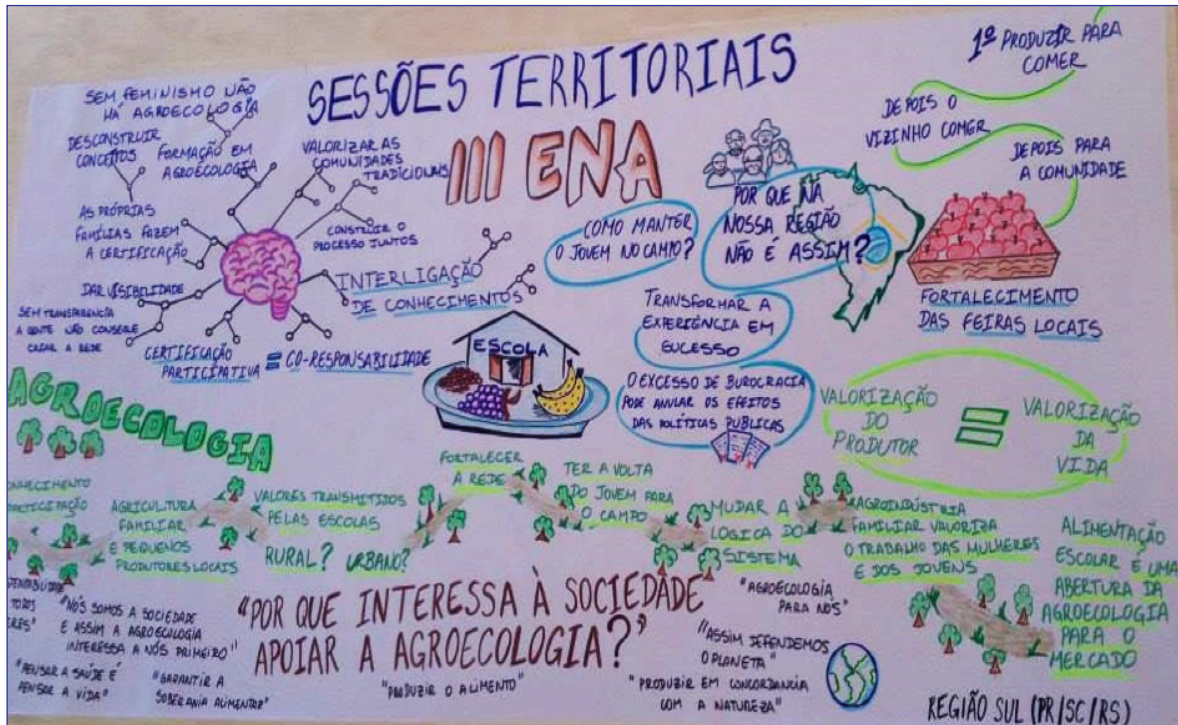 SESSÕES TERRITORIAIS
III ENA
SEM FEMINISMO NÃO
HÁ AGROECOLOGIA
DESCONSTRUIR
CONCEITOS
FORMAÇÃO EM
AGROECOLOGIA
VALORIZAR AS
COMUNIDADES
TRADICIONAIS
AS PRÓPRIAS
FAMÍLIAS FAZEM
A CERTIFICAÇÃO
CONSTRUIR O
PROCESSO JUNTOS
DAR VISIBILIDADE
INTERLIGAÇÃO
DE CONHECIMENTOS
SEM TRANSPARÊNCIA
A GENTE NÃO CONSEGUE
CRIAR A REDE
CERTIFICAÇÃO
PARTICIPATIVA = CO-RESPONSABILIDADE
COMO MANTER
O JOVEM NO CAMPO?
POR QUE NA
NOSSA REGIÃO
NÃO É ASSIM?
TRANSFORMAR A
EXPERIÊNCIA EM
SUCESSO
O EXCESSO DE BUROCRACIA
PODE ANULAR OS EFEITOS
DAS POLÍTICAS PUBLICAS
1º PRODUZIR PARA
COMER
DEPOIS O
VIZINHO COMER
DEPOIS PARA
A COMUNIDADE
FORTALECIMENTO
DAS FEIRAS LOCAIS
VALORIZAÇÃO
DO
PRODUTOR
=
VALORIZAÇÃO
DA
VIDA
ESCOLA
AGROECOLOGIA
ONHECIMENTO
ARTICIPAÇÃO
AGRICULTURA
FAMILIAR
E PEQUENOS
PRODUTORES LOCAIS
VALORES TRANSMITIDOS
PELAS ESCOLAS
RURAL? URBANO?
FORTALECER
A REDE
TER A VOLTA
DO JOVEM PARA
O CAMPO
MUDAR A
LOGICA DO
SISTEMA
AGROINDÚSTRIA
FAMILIAR VALORIZA
O TRABALHO DAS MULHERES
E DOS JOVENS
ALIMENTAÇÃO
ESCOLAR É UMA
ABERTURA DA
AGROECOLOGIA
PARA O
MERCADO
"POR QUE INTERESSA À SOCIEDADE
APOIAR A AGROECOLOGIA?"
TODOS
ERES"
"NÓS SOMOS A SOCIEDADE
E ASSIM A AGROECOLOGIA
INTERESSA A NÓS PRIMEIRO"
"PENSAR A SAÚDE É
PENSAR A VIDA"
"GARANTIR A
SOBERANIA ALIMENTAR"
"PRODUZIR O ALIMENTO"
"AGROECOLOGIA
PARA NÓS"
"ASSIM DEFENDEMOS
O PLANETA"
"PRODUZIR EM CONCORDANCIA
COM A NATUREZA"
REGIÃO SUL (PR/SC/RS)